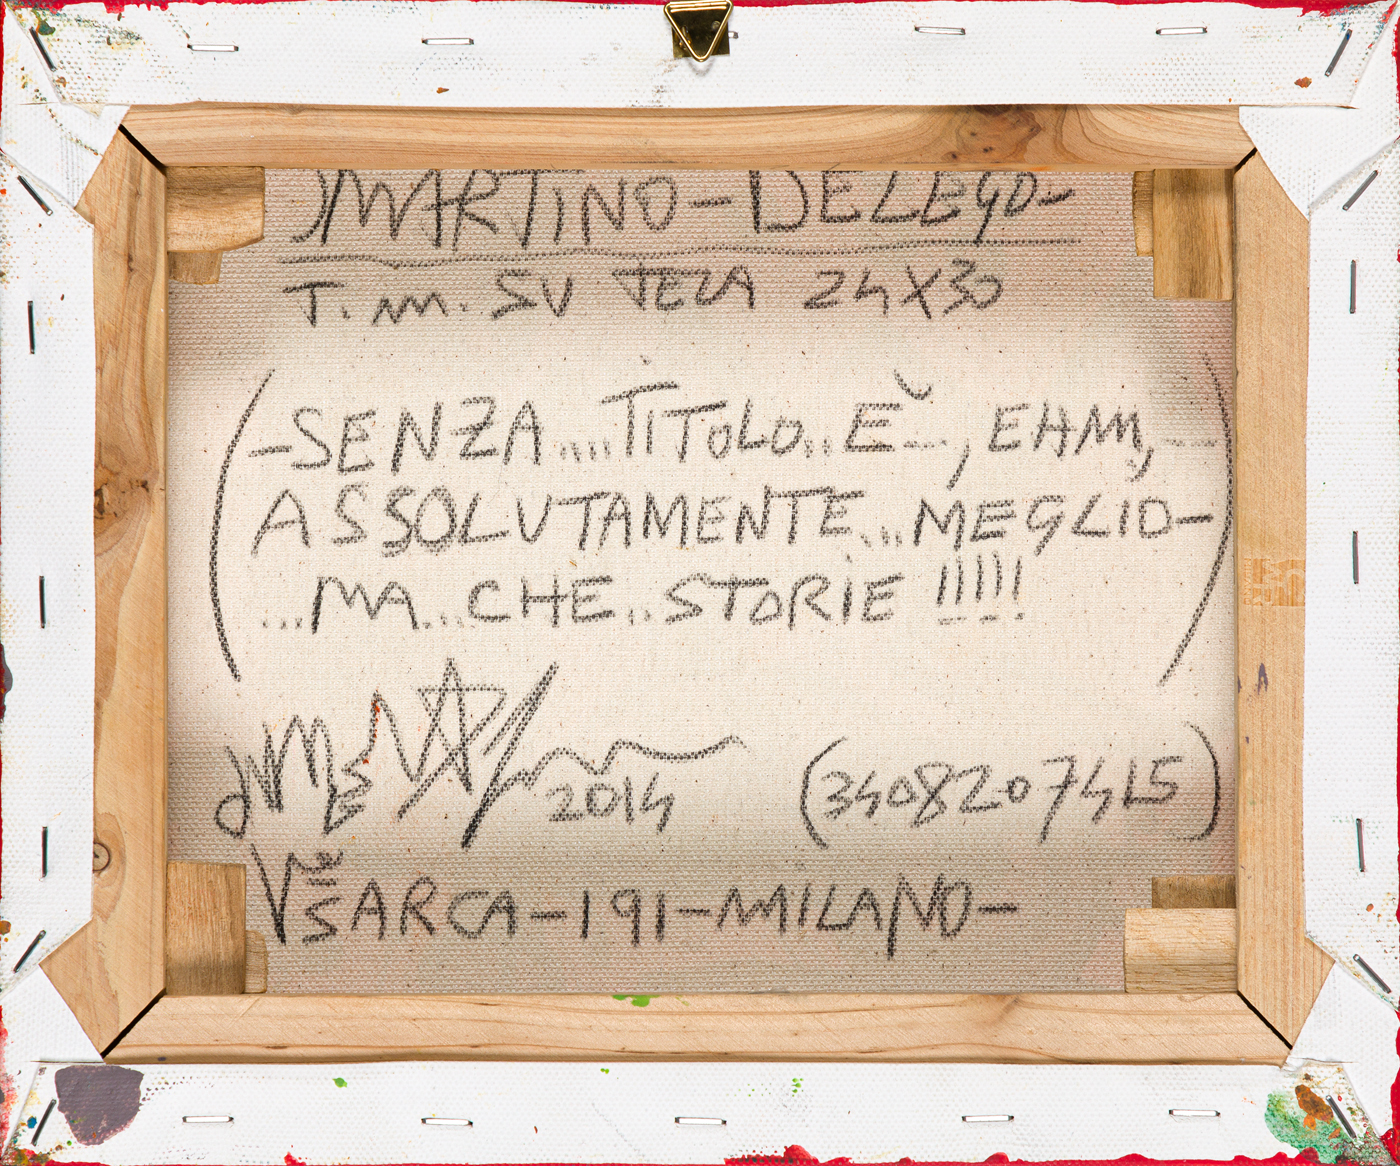 MARTINO-DELEGO-
T. M. SU TELA 24X30
(-SENZA....TiTOLO..È..., EHM,--
ASSOLUTAMENTE....MEGLIO-
...MA...CHE..STORiE !!!!!)
2014 (3408207415)
Vle SARCA-191-MILANO-